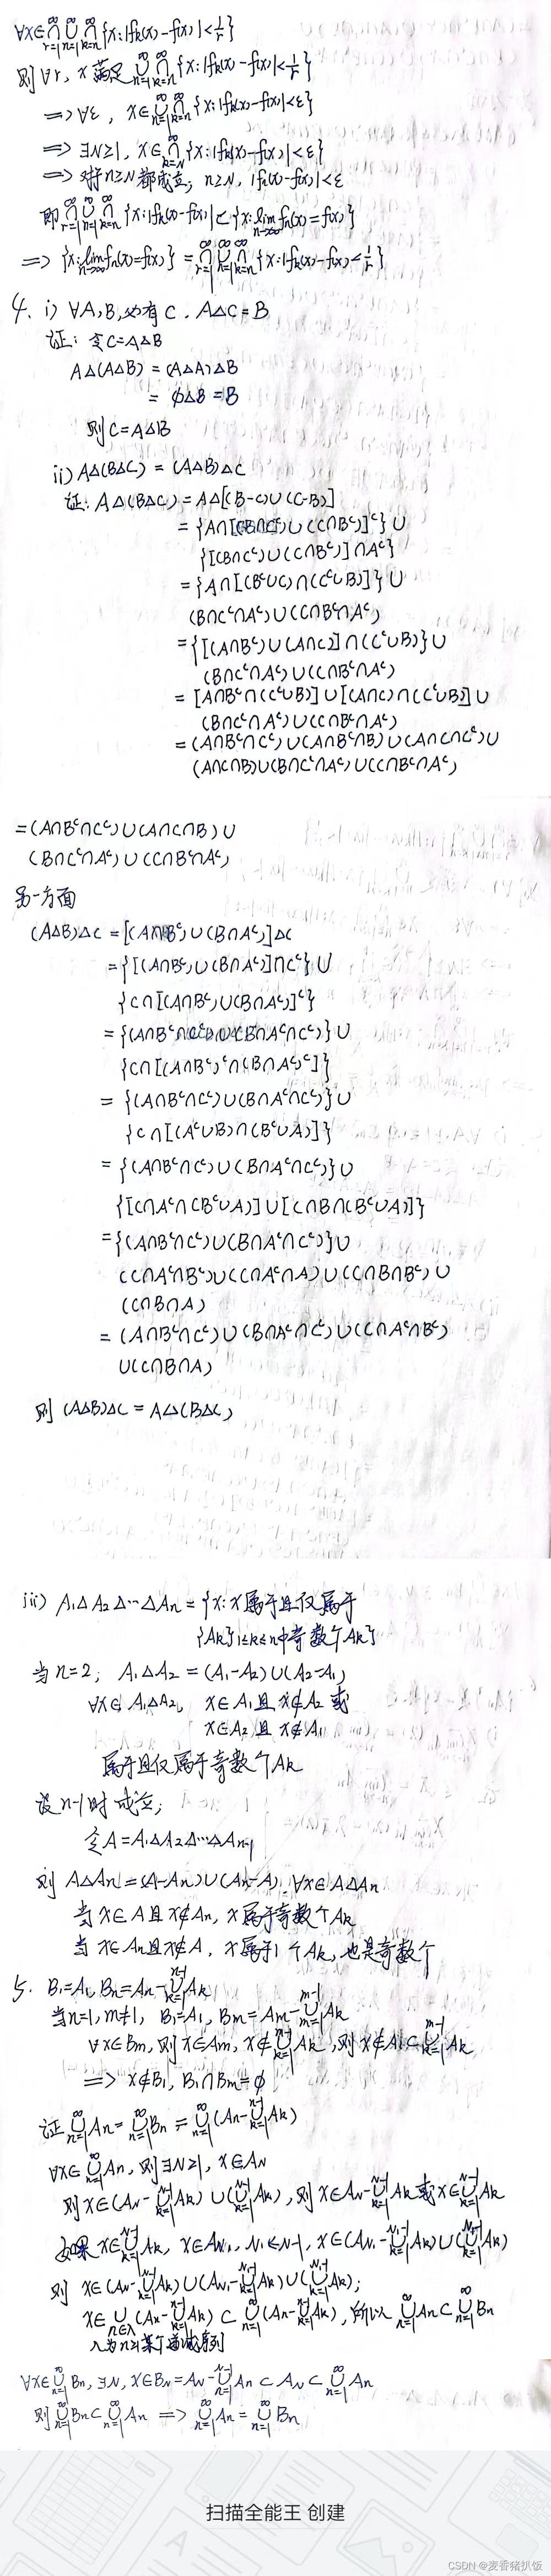 ∀x∈∩_{r=1}^∞ ∪_{n=1}^∞ ∩_{k=n}^∞ {x:|fk(x)-f(x)|<1/r}
则∀r, x满足 ∪_{n=1}^∞ ∩_{k=n}^∞ {x:|fk(x)-f(x)|<1/r}
=>∀ε, x∈∪_{n=1}^∞ ∩_{k=n}^∞ {x:|fk(x)-f(x)|<ε}
=> ∃N≥1, x∈∩_{k=N}^∞ {x:|fk(x)-f(x)|<ε}
=> 对n≥N都成立; n≥N, |fn(x)-f(x)|<ε
即 ∩_{r=1}^∞ ∪_{n=1}^∞ ∩_{k=n}^∞ {x:|fk(x)-f(x)|⊂{x:lim_{n→∞} fn(x)=f(x)}
=> {x:lim_{n→∞} fn(x)=f(x)} = ∩_{r=1}^∞ ∪_{n=1}^∞ ∩_{k=n}^∞ {x:|fk(x)-f(x)|<1/r}
4. i) ∀A,B,必有C. A△C=B
证: 令C=A△B
A△(A△B) = (A△A)△B
= ∅△B = B
则C=A△B
ii) A△(B△C) = (A△B)△C
证: A△(B△C) = A△[(B-C)∪(C-B)]
= {A∩[(B∩C^c)∪(C∩B^c)]^c}∪
{[(B∩C^c)∪(C∩B^c)]∩A^c}
= {A∩[(B^c∪C)∩(C^c∪B)]}∪
(B∩C^c∩A^c)∪(C∩B^c∩A^c)
= {[(A∩B^c)∪(A∩C)]∩(C^c∪B)}∪
(B∩C^c∩A^c)∪(C∩B^c∩A^c)
= [A∩B^c∩(C^c∪B)]∪[(A∩C)∩(C^c∪B)]∪
(B∩C^c∩A^c)∪(C∩B^c∩A^c)
= (A∩B^c∩C^c)∪(A∩B^c∩B)∪(A∩C∩C^c)∪
(A∩C∩B)∪(B∩C^c∩A^c)∪(C∩B^c∩A^c)
=(A∩B^c∩C^c)∪(A∩C∩B)∪
(B∩C^c∩A^c)∪(C∩B^c∩A^c)
另一方面
(A△B)△C = [(A∩B^c)∪(B∩A^c)]△C
= {[(A∩B^c)∪(B∩A^c)]∩C^c}∪
{C∩[(A∩B^c)∪(B∩A^c)]^c}
= {(A∩B^c∩C^c)∪(B∩A^c∩C^c)}∪
{C∩[(A∩B^c)^c∩(B∩A^c)^c]}
= {(A∩B^c∩C^c)∪(B∩A^c∩C^c)}∪
{C∩[(A^c∪B)∩(B^c∪A)]}
= {(A∩B^c∩C^c)∪(B∩A^c∩C^c)}∪
{[C∩A^c∩(B^c∪A)]∪[C∩B∩(B^c∪A)]}
= {(A∩B^c∩C^c)∪(B∩A^c∩C^c)}∪
(C∩A^c∩B^c)∪(C∩A^c∩A)∪(C∩B∩B^c)∪
(C∩B∩A)
= (A∩B^c∩C^c)∪(B∩A^c∩C^c)∪(C∩A^c∩B^c)
∪(C∩B∩A)
则 (A△B)△C = A△(B△C)
iii) A₁△A₂△…△An = {x:x属于且仅属于
{Ak}1≤k≤n中奇数个Ak}
当n=2, A₁△A₂ = (A₁-A₂)∪(A₂-A₁)
∀x∈A₁△A₂, x∈A₁且x∉A₂或
x∈A₂且x∉A₁
属于且仅属于奇数个Ak
设n-1时成立;
令A=A₁△A₂△…△An-1
则A△An=(A-An)∪(An-A) ∀x∈A△An
当x∈A且x∉An, x属于奇数个Ak
当x∈An且x∉A, x属于1个Ak,也是奇数个
5. B₁=A₁, Bn=An-∪_{k=1}^{n-1} Ak
当n=1, m≠1, B₁=A₁, Bm=Am-∪_{m=1}^{m-1} Ak
∀x∈Bm,则x∈Am, x∉∪_{k=1}^{m-1} Ak,则x∉A₁⊂∪_{k=1}^{m-1} Ak
=> x∉B₁, B₁∩Bm=∅
证 ∪_{n=1}^∞ An = ∪_{n=1}^∞ Bn = ∪_{n=1}^∞ (An-∪_{k=1}^{n-1} Ak)
∀x∈∪_{n=1}^∞ An, 则∃N≥1, x∈AN
则x∈(AN-∪_{k=1}^{N-1} Ak)∪(∪_{k=1}^{N-1} Ak),则x∈AN-∪_{k=1}^{N-1} Ak或x∈∪_{k=1}^{N-1} Ak
如果x∈∪_{k=1}^{N-1} Ak, x∈AN₁, N₁≤N-1, x∈(AN₁-∪_{k=1}^{N₁-1} Ak)∪(∪_{k=1}^{N₁-1} Ak)
则 x∈(AN-∪_{k=1}^{N-1} Ak)∪(AN₁-∪_{k=1}^{N₁-1} Ak)∪(∪_{k=1}^{N₁-1} Ak);
x∈∪_{n∈λ} (An-∪_{k=1}^{n-1} Ak)⊂∪_{n=1}^∞ (An-∪_{k=1}^{n-1} Ak),所以∪_{n=1}^∞ An⊂∪_{n=1}^∞ Bn
λ为n≥1某个递减序列
∀x∈∪_{n=1}^∞ Bn, ∃N, x∈BN=AN-∪_{n=1}^{N-1} An⊂AN⊂∪_{n=1}^∞ An
则∪_{n=1}^∞ Bn⊂∪_{n=1}^∞ An => ∪_{n=1}^∞ An=∪_{n=1}^∞ Bn
扫描全能王 创建
CSDN @麦香猪扒饭